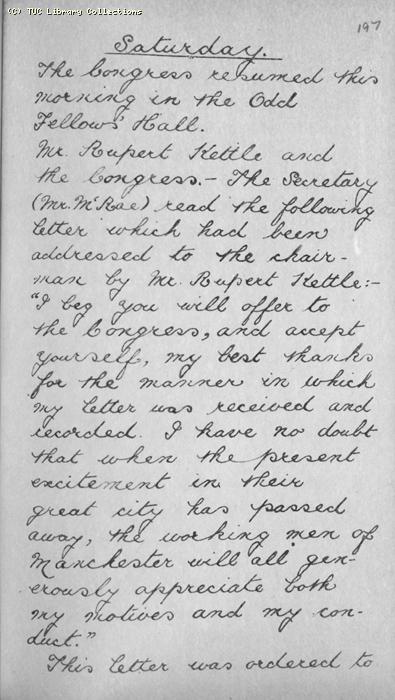 (C) TUC Library Collections
197
Saturday.
The Congress resumed this
morning in the Odd
Fellows' Hall.
Mr. Rupert Kettle and
the Congress.- The Secretary
(Mr. McRae) read the following
letter which had been
addressed to the chair-
man by Mr. Rupert Kettle:-
"I beg you will offer to
the Congress, and accept
yourself, my best thanks
for the manner in which
my letter was received and
recorded. I have no doubt
that when the present
excitement in their
great city has passed
away, the working men of
Manchester will all gen-
erously appreciate both
my motives and my con-
duct."
This letter was ordered to